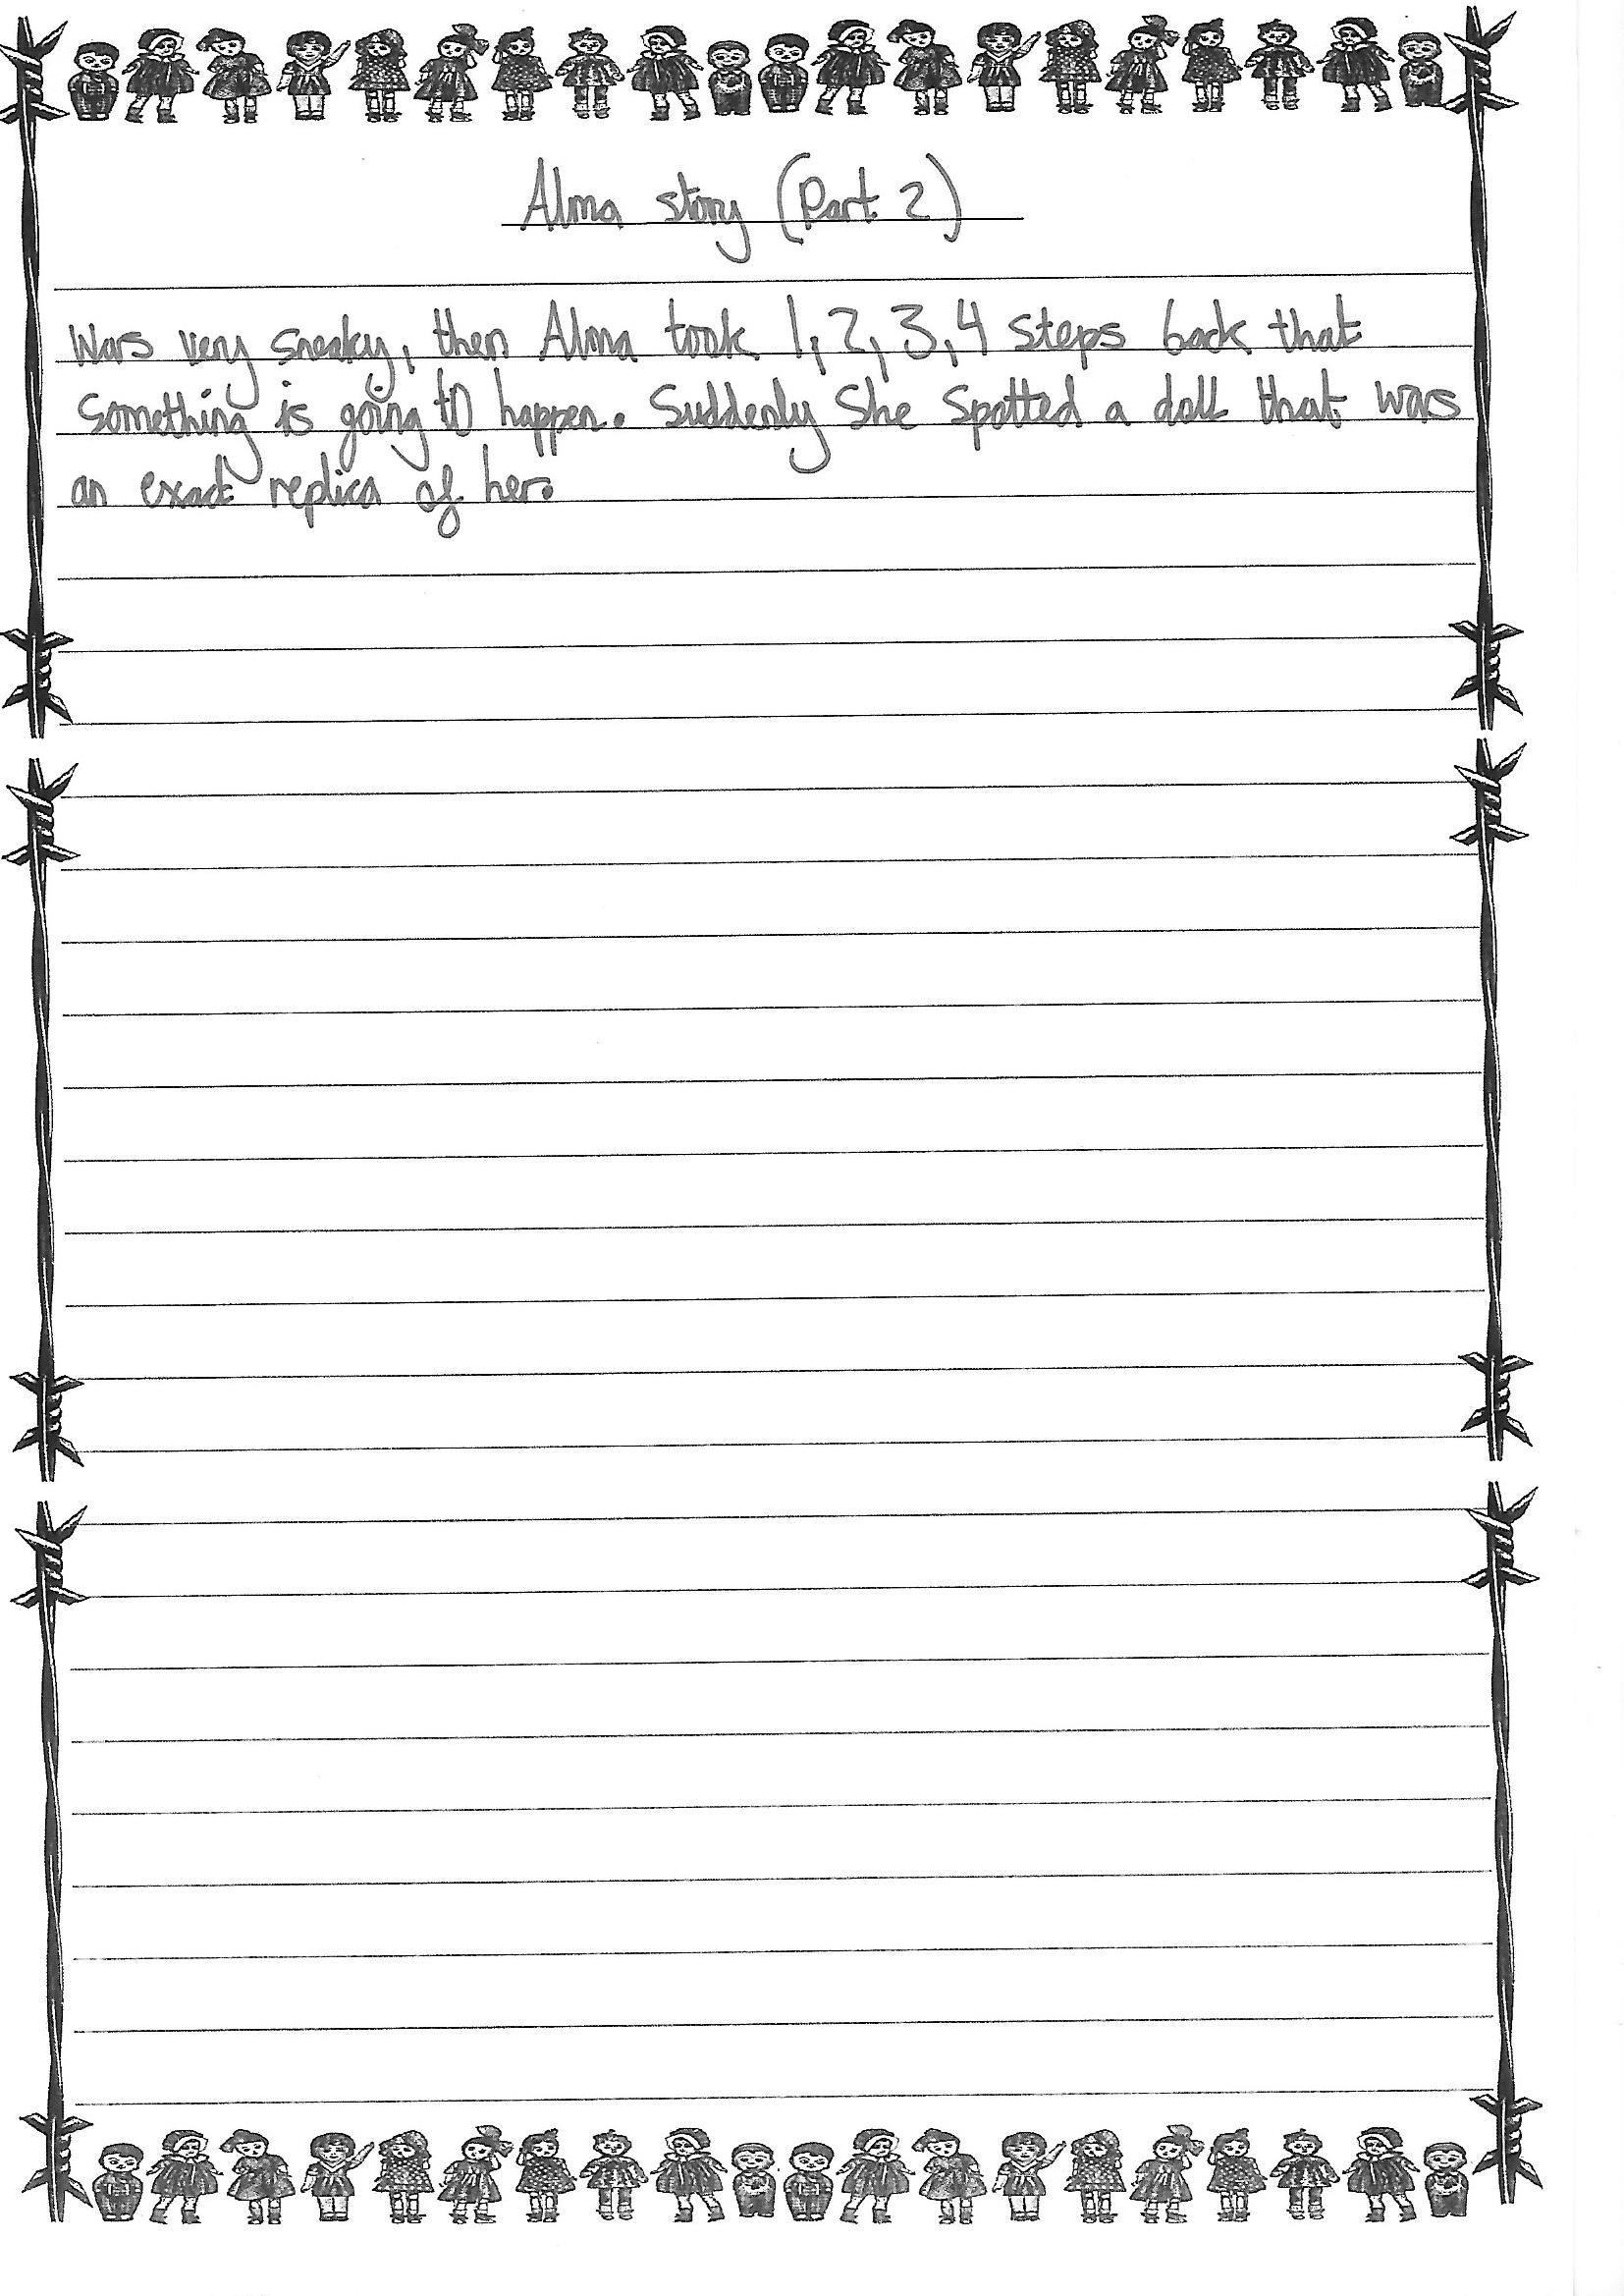 Alma story (Part 2)
Was very sneaky, then Alma took 1, 2, 3, 4 steps back that
Something is going to happen. Suddenly She Spotted a doll that was
an exact replica of her.